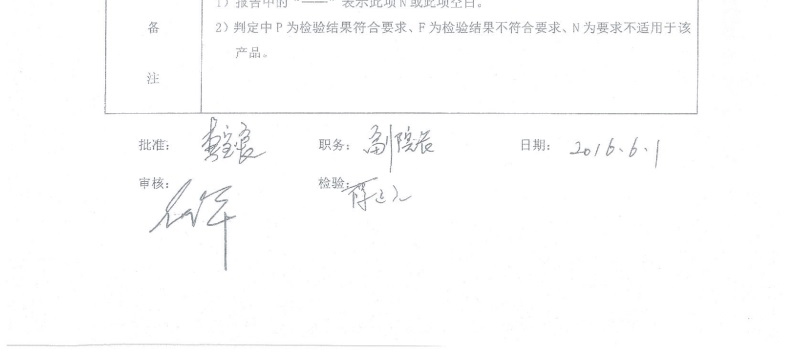 1）报告中的“——”表示此项N或此项空白。
备
注
2）判定中P为检验结果符合要求、F为检验结果不符合要求、N为要求不适用于该
产品。
批准： 职务：副院长 日期：2016.6.1
审核： 检验：